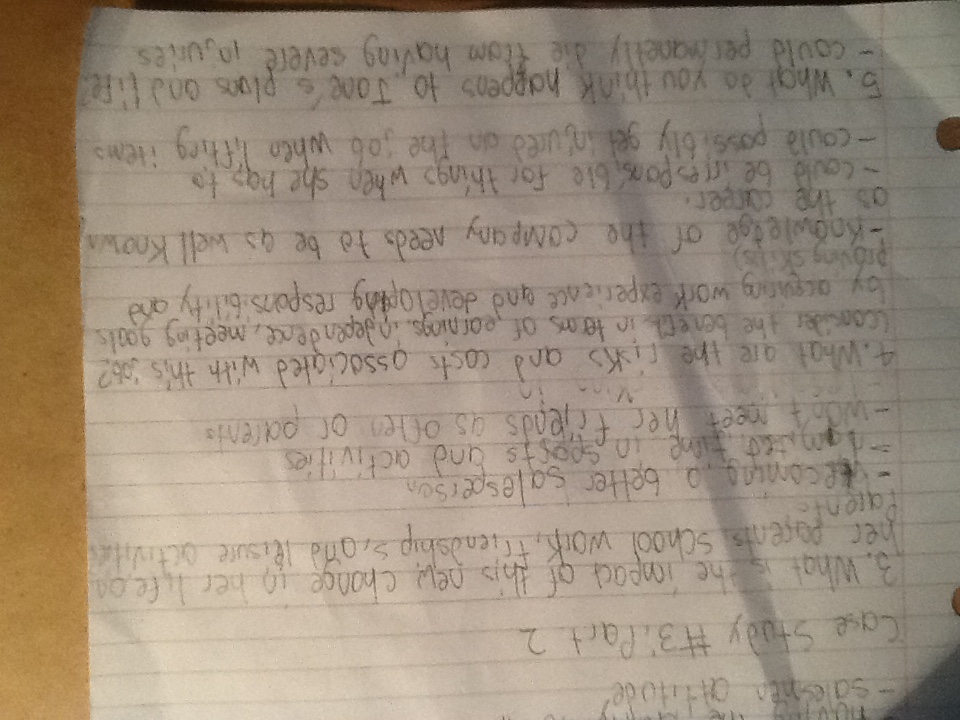 - salesmen attitude
Case Study #3: Part 2
3. What is the impact of this new change in her life on
her parents, school work, friendships, and leisure activities
Parents
- becoming a better salesperson
- limited time in sports and activities
- won't meet her friends as often or parents
4. What are the risks and costs associated with this job?
(consider the benefit in terms of earnings, independence, meeting goals
by acquiring work experience and developing responsibility and
proving skills)
- Knowledge of the company needs to be as well known
as the career.
- could be irresponsible for things when she has to
- could possibly get injured on the job when lifting items
5. What do you think happens to Jane's plans and life?
- could permanetly die from having severe injuries